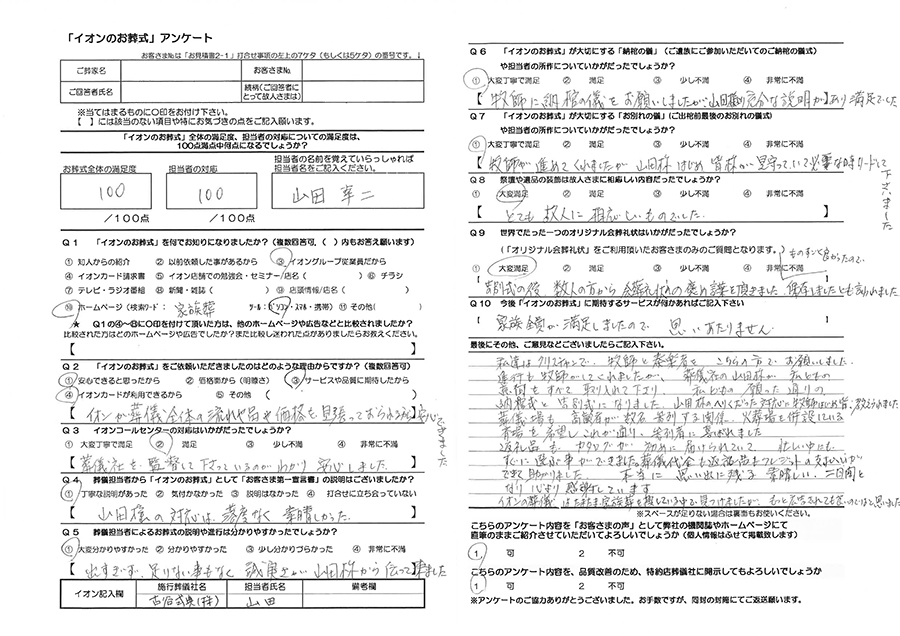 「イオンのお葬式」アンケート
お客さま№は「お見積書2-1」打合せ事項の左上の7ケタ（もしくは5ケタ）の番号です。↓
ご葬家名 お客さま№
ご回答者氏名 続柄(ご回答者に
とって故人さまは)
※当てはまるものに○印をお付け下さい。
【 】には該当のない項目や特にお気づきの点をご記入願います。
「イオンのお葬式」全体の満足度、担当者の対応についての満足度は、
100点満点中何点になるでしょうか？
お葬式全体の満足度 担当者の対応 担当者の名前を覚えていらっしゃれば
担当者名をご記入ください。
100 100 山田 幸二
／100点 ／100点
Q1 「イオンのお葬式」を何でお知りになりましたか？（複数回答可、（ ）内もお答え願います）
① 知人からの紹介 ② 以前依頼した事があるから ③ イオングループ従業員だから
④ イオンカード請求書 ⑤ イオン店舗での勉強会・セミナー/店名（ ） ⑥ チラシ
⑦ テレビ・ラジオ番組 ⑧ 新聞・雑誌（ ） ⑨ 店頭情報/店名（ ）
⑩ ホームページ（検索ワード： 家族葬 ツール：パソコン・スマホ・携帯） ⑪ その他（ ）
★ Q1の④～⑧に○印を付けて頂いた方は、他のホームページや広告などと比較されましたか？
比較された方はどのホームページや広告でしたか？また比較し迷われた点がありましたらお教えください。
【 】
Q2 「イオンのお葬式」をご依頼いただきましたのはどのような理由からですか？（複数回答可）
① 安心できると思ったから ② 価格面から（明瞭さ） ③ サービスや品質に期待したから
④ イオンカードが利用できるから ⑤ その他（ ）
【イオンが葬儀全体の流れや品や価格を見張っておられる所】安心できました
Q3 イオンコールセンターの対応はいかがだったでしょうか？
① 大変丁寧で満足 ② 満足 ③ 少し不満 ④ 非常に不満
【葬儀社を監督して下さっているのがわかり安心しました。 】
Q4 葬儀担当者から「イオンのお葬式」として「お客さま第一宣言書」の説明はございましたか？
① 丁寧な説明があった ② 気付かなかった ③ 説明はなかった ④ 打合せに立ち会っていない
【 山田様の対応は、落度なく素晴しかった。 】
Q5 葬儀担当者によるお葬式の説明や進行は分かりやすかったでしょうか？
① 大変分かりやすかった ② 分かりやすかった ③ 少し分かりづらかった ④ 非常に不満
【 出すぎず、足りない事もなく 誠実さが山田様から伝って】来ました
イオン記入欄 施行葬儀社名 担当者氏名 備考欄
古谷式典(株) 山田
Q6 「イオンのお葬式」が大切にする「納棺の儀」（ご遺族にご参加いただいてのご納棺の儀式）
や担当者の所作についていかがだったでしょうか？
① 大変丁寧で満足 ② 満足 ③ 少し不満 ④ 非常に不満
【牧師に納棺の儀をお願いしましたが山田様の充分な説明が】あり満足でした
Q7 「イオンのお葬式」が大切にする「お別れの儀」（ご出棺前最後のお別れの儀式）
や担当者の所作についていかがだったでしょうか？
① 大変満足 ② 満足 ③ 少し不満 ④ 非常に不満
【牧師が進めてくれましたが 山田様はじめ皆様が見守っていて必要な時リードして下さいました
Q8 祭壇や遺品の装飾は故人さまに相応しい内容だったでしょうか？
① 大変満足 ② 満足 ③ 少し不満 ④ 非常に不満
【 とても故人に相応しいものでした。 】
Q9 世界でたった一つのオリジナル会葬礼状はいかがだったでしょうか？
（「オリジナル会葬礼状」をご利用頂いたお客さまのみのご質問となります。） ものすごく良かったので、
① 大変満足 ② 満足 ③ 少し不満 ④ 非常に不満
告別式の後 数人の方から会葬礼状の褒め言葉を頂きました。保存しましたとも言われました
Q10 今後「イオンのお葬式」に期待するサービスが何かあればご記入下さい
【 家族全員が満足しましたので 思いあたりません。 】
最後にその他、ご意見などございましたらご記入下さい。
私達はクリスチャンで、牧師と奏楽者を こちらの方で お願いしました。
進行も牧師がしてくれましたが、 葬儀社の山田様が 私どもの
意向をすべて取り入れて下さり、 私どもの願った通りの
納棺式と告別式になりました 山田様のへりくだった対応に牧師はじめ皆、教えられました
葬儀場も 高齢者が数名参列する関係、火葬場と併設している
斎場を希望し これが通り、参列者に喜ばれました
返礼品も カタログが初めに届けられていて 忙しい中にも
すぐに選ぶ事ができました 葬儀代金も返礼品もクレジットの支払いが
でき助かりました 本当に 思い出に残る 素晴しい二日間と
なり 心より感謝しています
イオンの葬儀はたまたま家族葬を探している中で見つけましたが、もっと宣伝されても良いのにと思いました
※スペースが足りない場合は裏面もお使いください。
こちらのアンケート内容を「お客さまの声」として弊社の機関誌やホームページにて
直筆のままご紹介させていただいてよろしいでしょうか（個人情報はふせて掲載致します）
1 可 2 不可
こちらのアンケート内容を、品質改善のため、特約店葬儀社に開示してもよろしいでしょうか
1 可 2 不可
※アンケートのご協力ありがとうございました。お手数ですが、同封の封筒にてご返送願います。